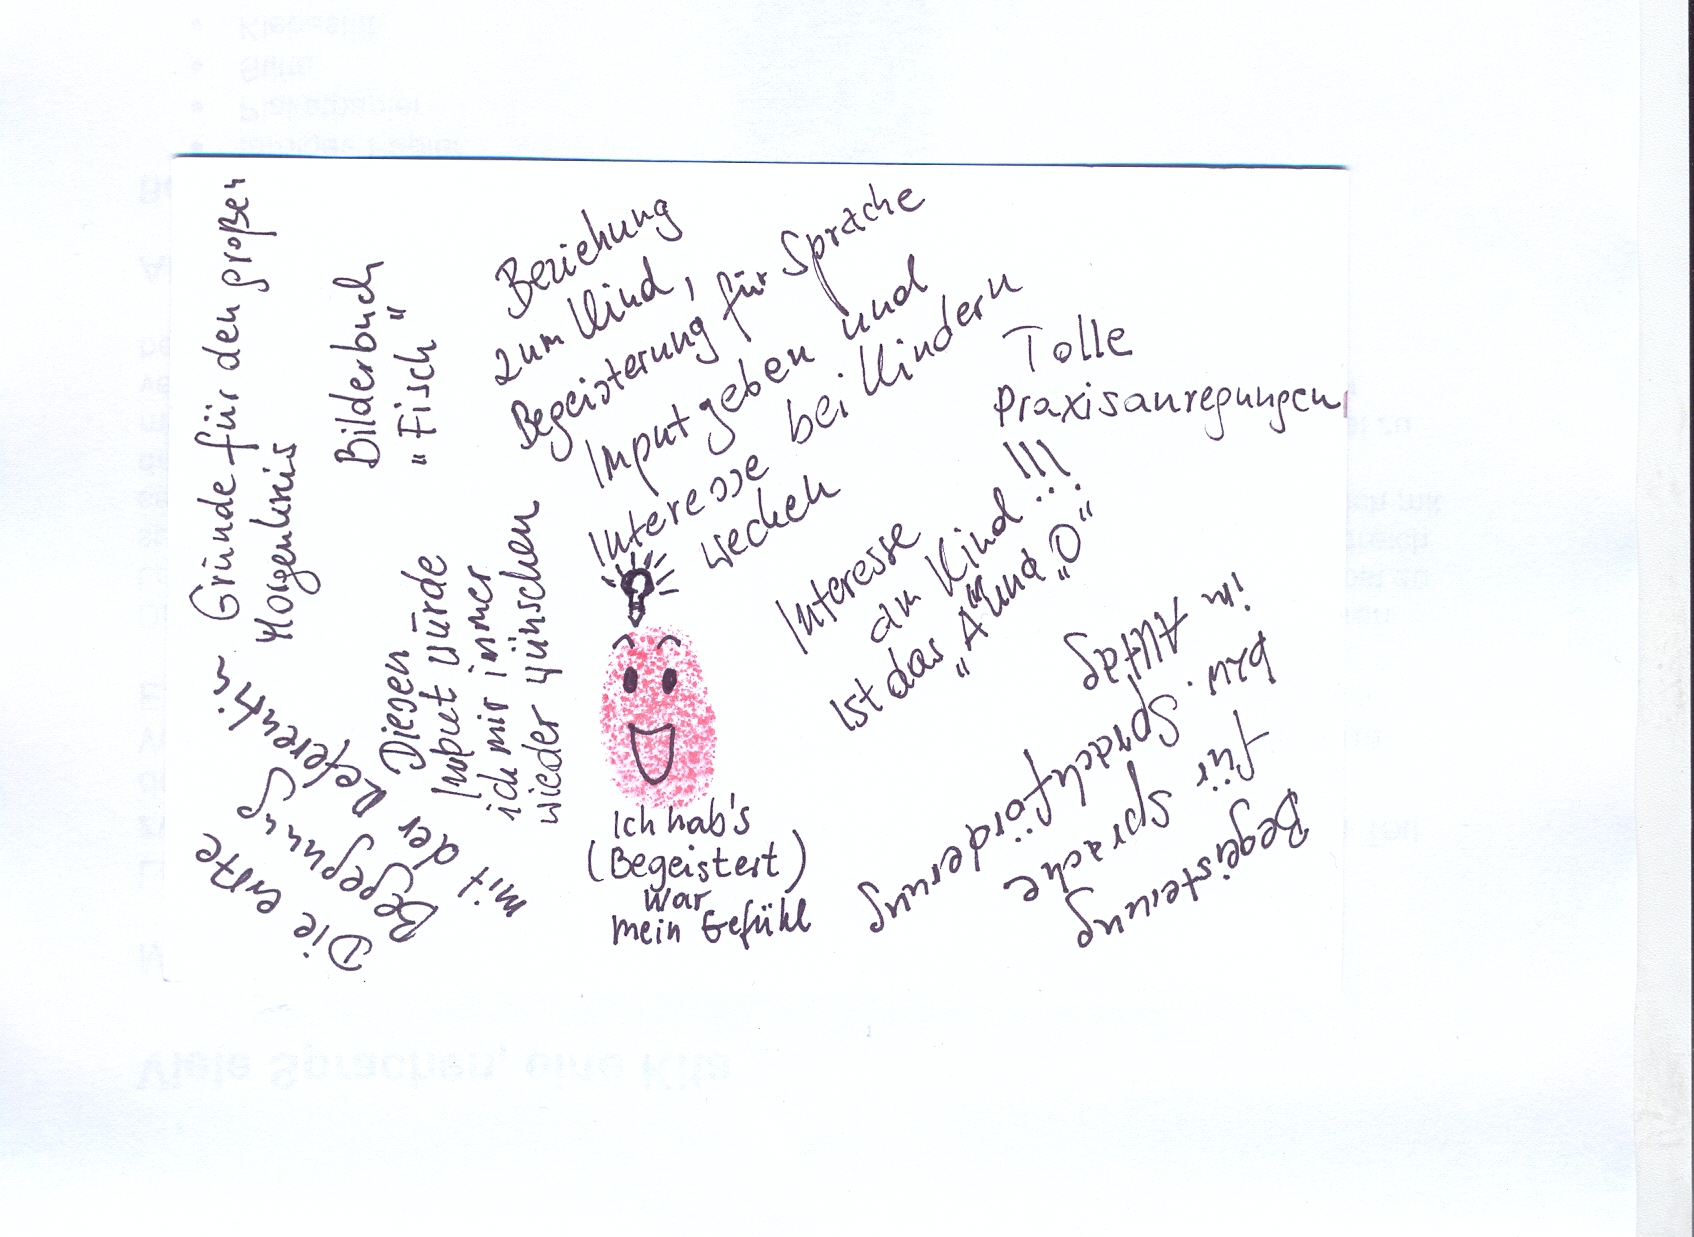 Gründe für den großen
Morgenkreis
Bilderbuch
"Fisch"
Beziehung
zum Kind,
Begeisterung für Sprache
Input geben und
Interesse bei Kindern
wecken
Tolle
Praxisanregungen
Interesse
am Kind!!!
Ist das „A" und „O"
Diesen
Input würde
ich mir immer
wieder wünschen
Die erste
Begegnung
mit der Referentin
Ich hab's
(Begeistert)
war
mein Gefühl
Begeisterung
für Sprache
bzw. Sprachförderung
im Alltag
Viele Sprachen, eine Kita